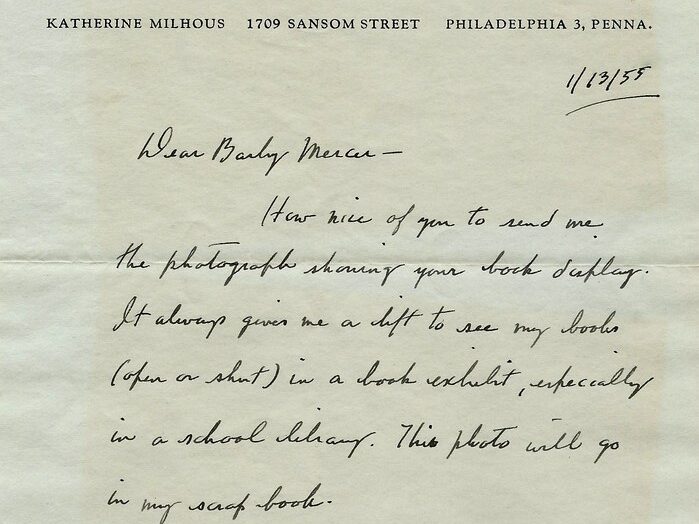 KATHERINE MILHOUS 1709 SANSOM STREET PHILADELPHIA 3, PENNA.
1/13/55
Dear Barby Mercer —
How nice of you to send me
the photograph showing your book display.
It always gives me a lift to see my books
(open or shut) in a book exhibit, especially
in a school library. This photo will go
in my scrap book.